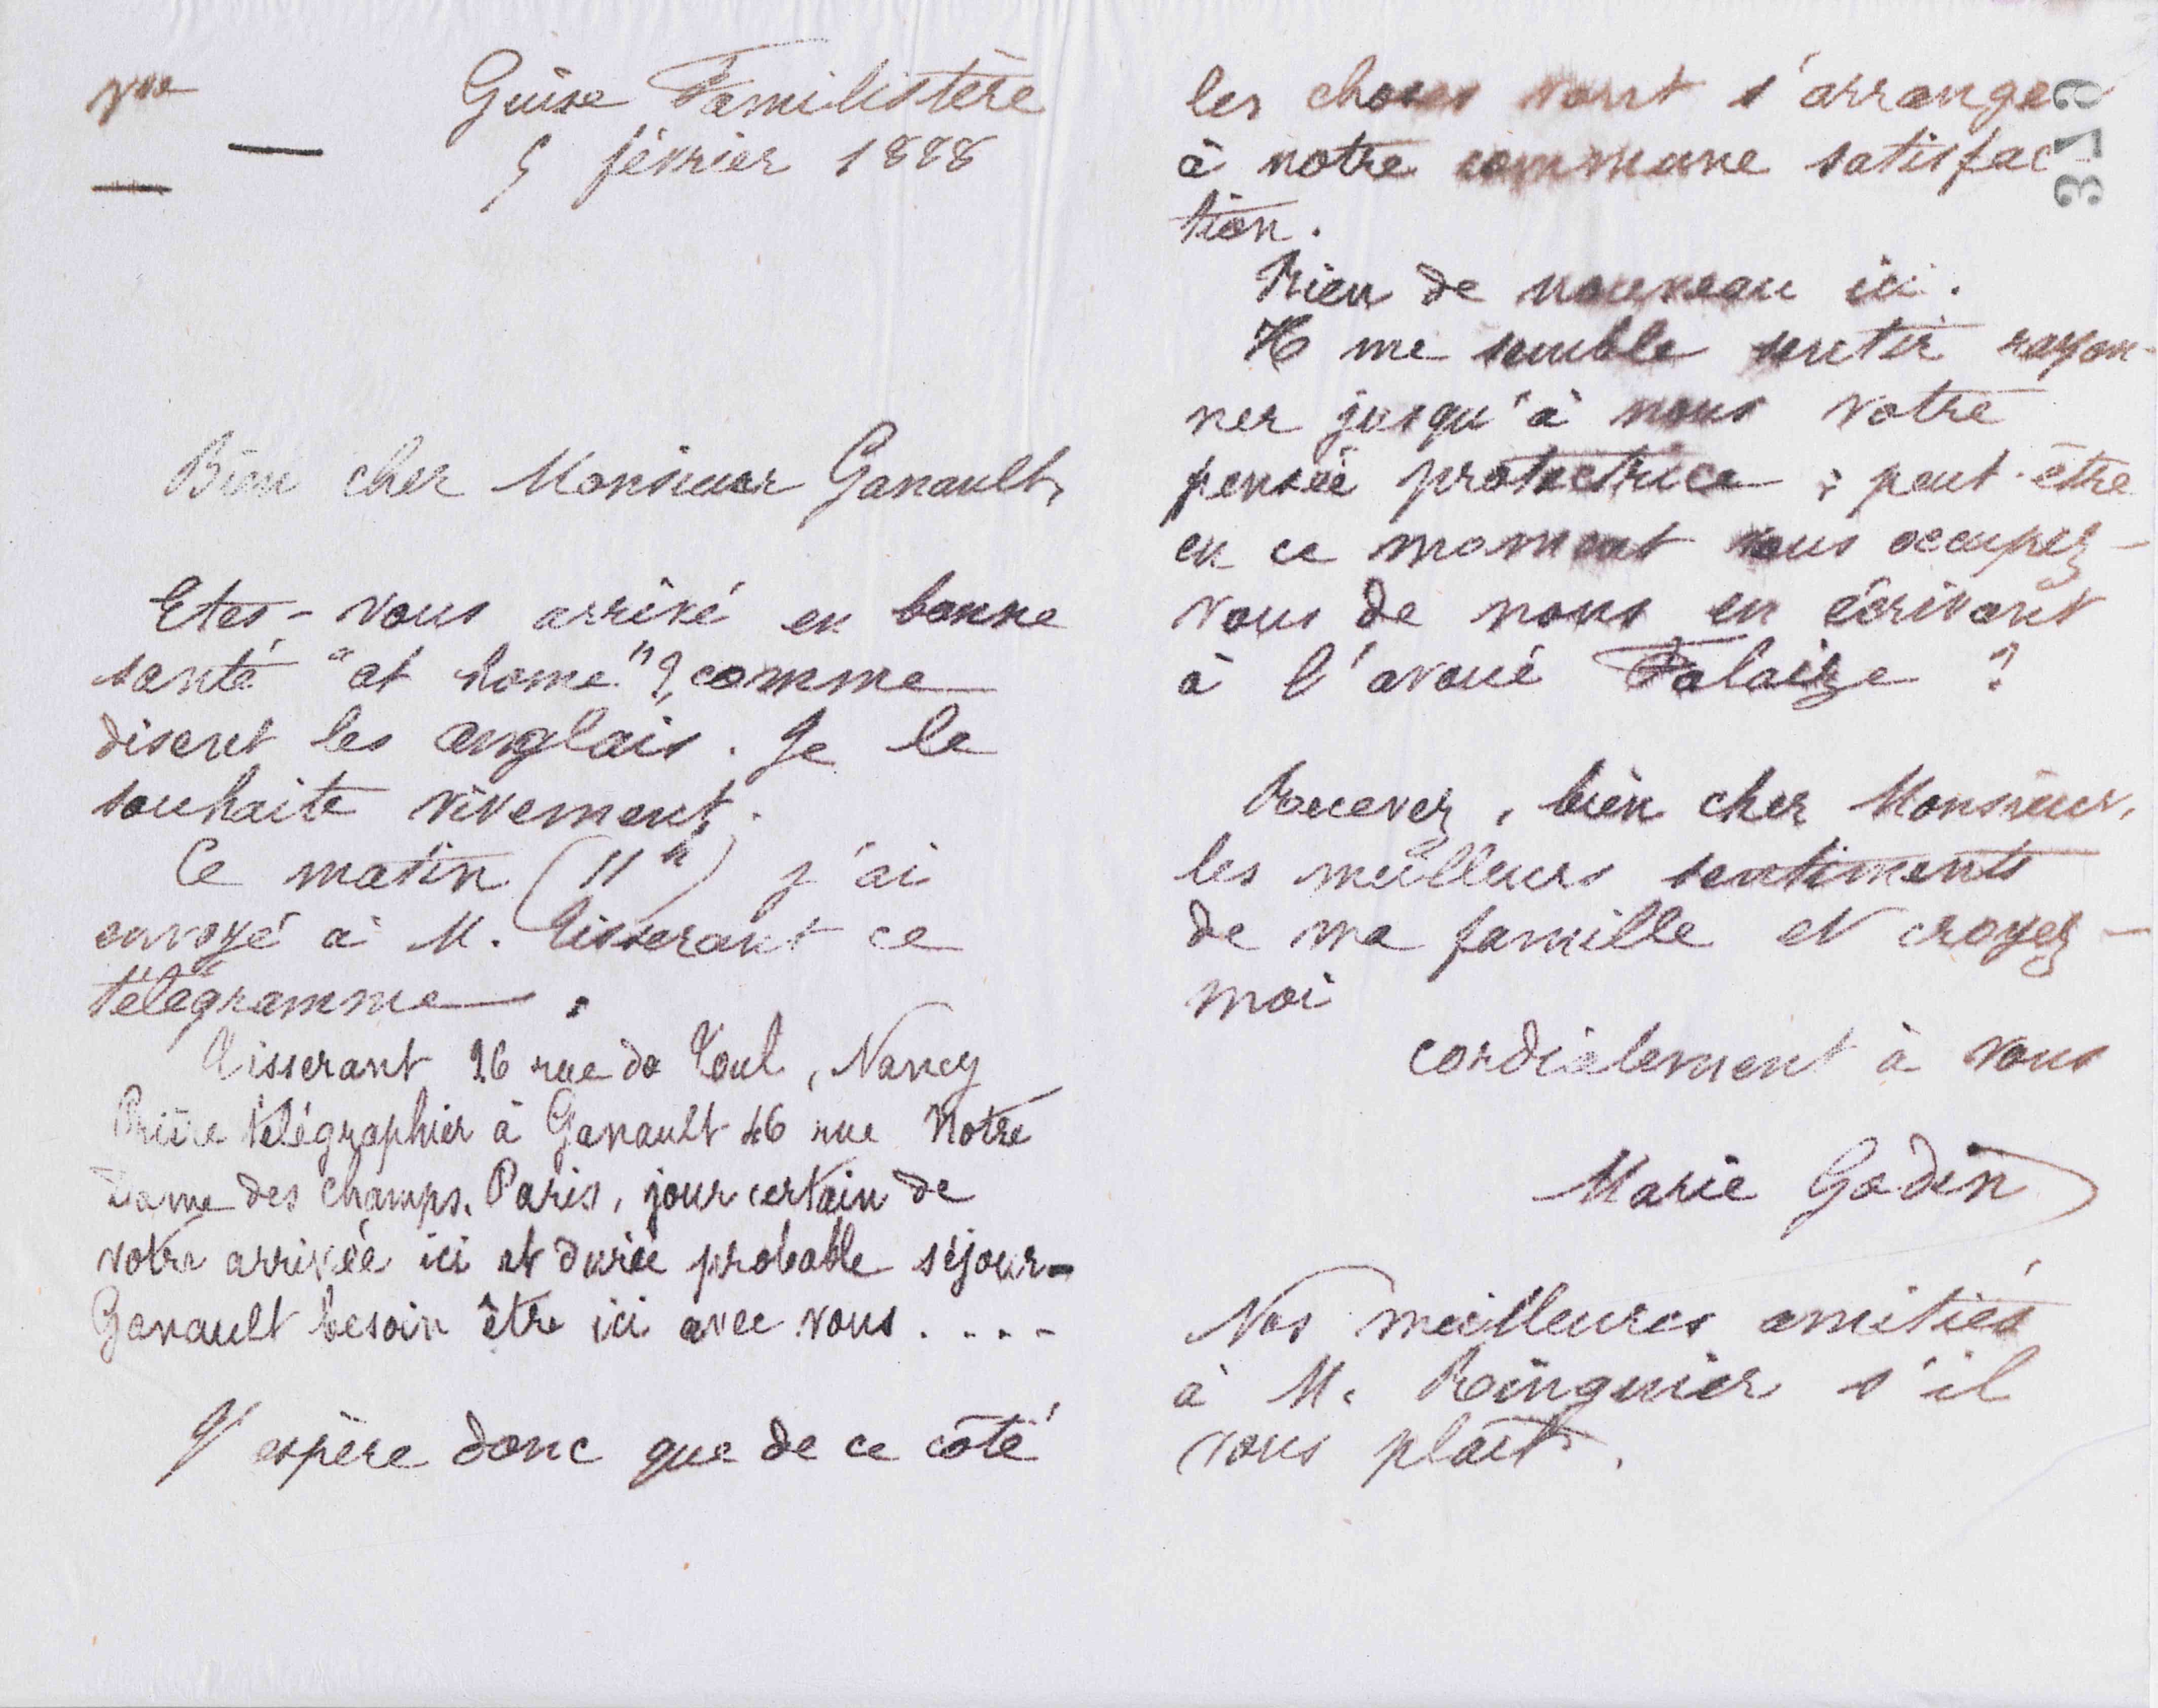 Guise Familistère
5 février 1888
Bien cher Monsieur Ganault,
Etes-vous arrivé en bonne
santé "at home"?, comme
disent les anglais. Je le
souhaite vivement.
Ce matin (11h) j'ai
envoyé à M. Tisserant ce
télégramme.
Tisserant 26 rue de Toul, Nancy
Prière télégraphier à Ganault 46 rue Notre
Dame des champs. Paris, jour certain de
votre arrivée ici et durée probable séjour-
Ganault besoin être ici avec vous....
J'espère donc que de ce côté
les choses vont s'arranger
à notre commune satisfac
tion.
Rien de nouveau ici.
Il me semble sentir rayon-
ner jusqu'à nous votre
pensée protectrice ; peut-être
en ce moment vous occupez-
vous de nous en écrivant
à l'avoué Falaize ?
Recevez, bien cher Monsieur,
les meilleurs sentiments
de ma famille et croyez-
moi
cordialement à vous
Marie Godin
Nos meilleures amitiés
à M. Ringuier s'il
vous plaît.
319